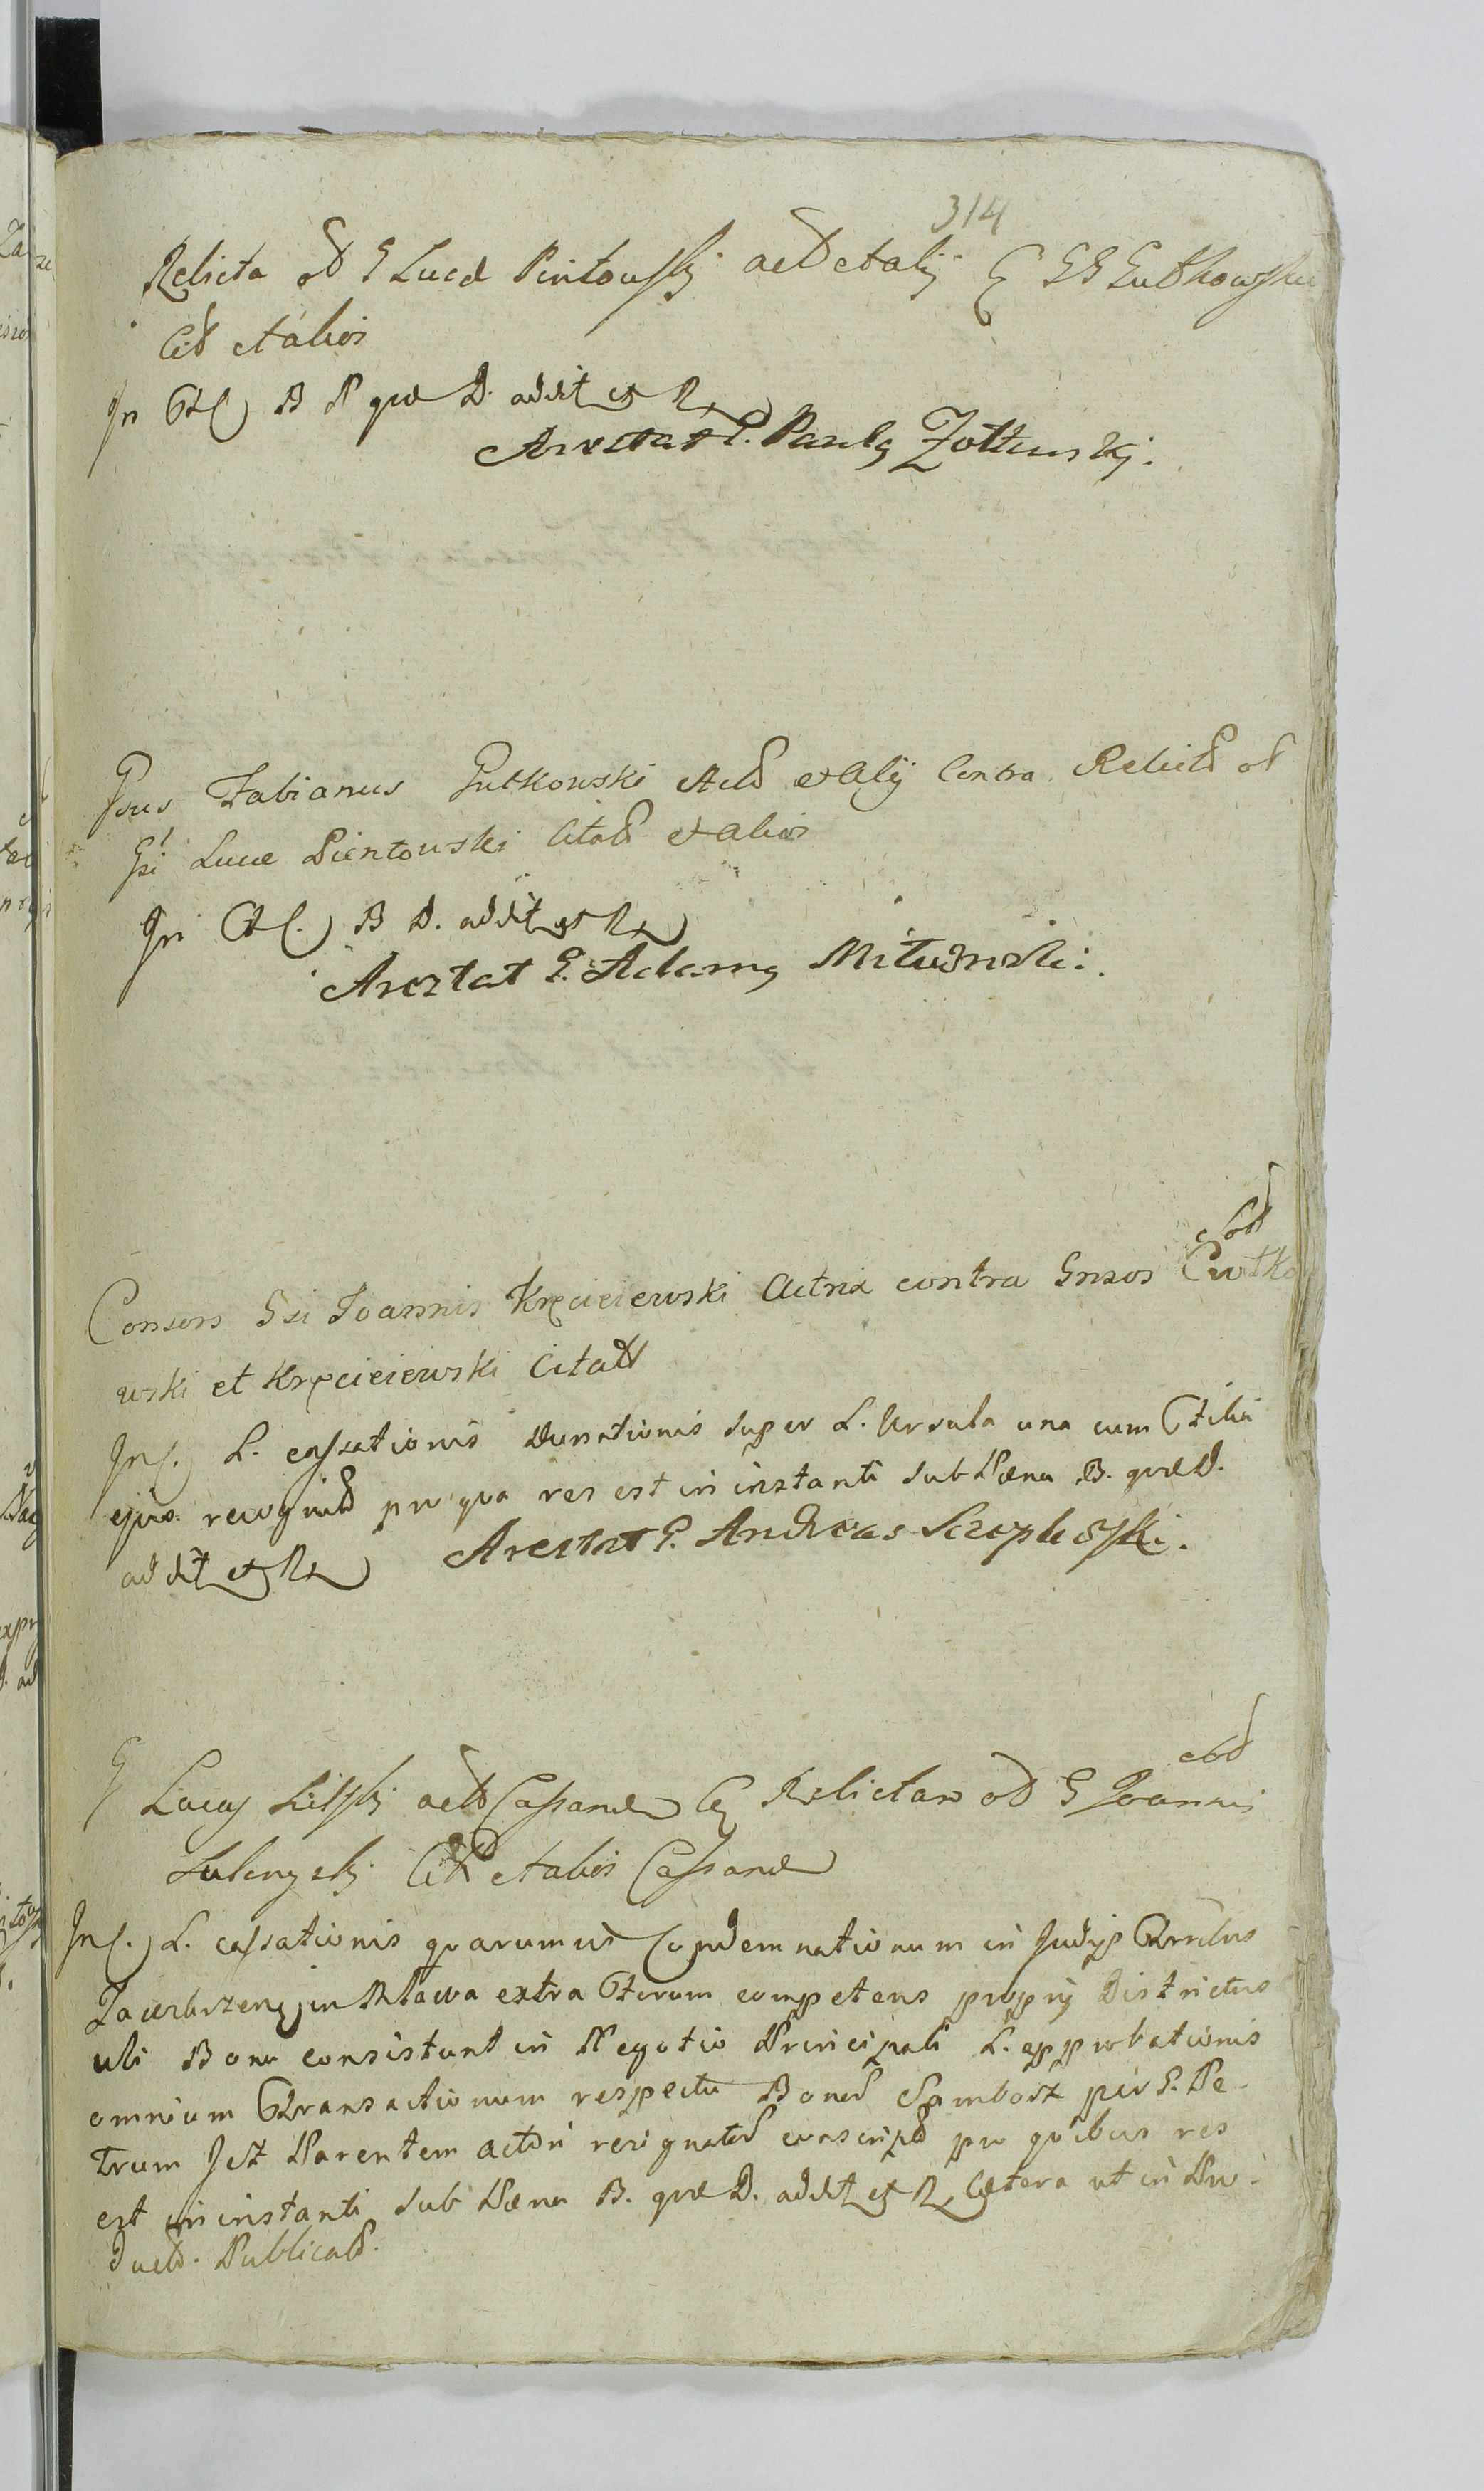 314
Relicta od G Lucæ Pintowskj act et alij C GG Gutkowskie
Cit et alios
In Ct B P quæ D. addit et R
Arestat G. Pauls Żołtwskj.
Gsus Fabianus Gutkowski Act et alij Contra Relict od
Gsi Lucæ Pientowski Citat et alios
In Ct B D. addit et R
Arestat G. Adams Miłuznski.
eod
Consors Gsi Joannis Kręcieiewski Actrix contra Gnsos Cwotko
wski et Kręcieiewski Citat
Ins. L. cassationis Donationis super L. Ursula una cum Filia
ejus recognit pro qua res est in instanti sub Pæna B. quæ D.
addit et R
Arestat G. Andreas Szeplewski.
eod
G Lucas act Cassand C Relictam od G Joannis
Cit et alios Cassand
Ins. L. cassationis quarumvis Condemnationum in Judijs Trrlbus
Zawkrzens in Mława extra Forum competens proprij Districtus
ubi Bona consistunt in Negotio Principali L. approbationis
omnium Transactionum respectu Bonor Samborz per G. Pe-
trum Parentem actori resignator conscript pro quibus res
est in instanti sub Pæna B. quæ D. addit et R Cætera ut in Pro-
duct. Publicat.